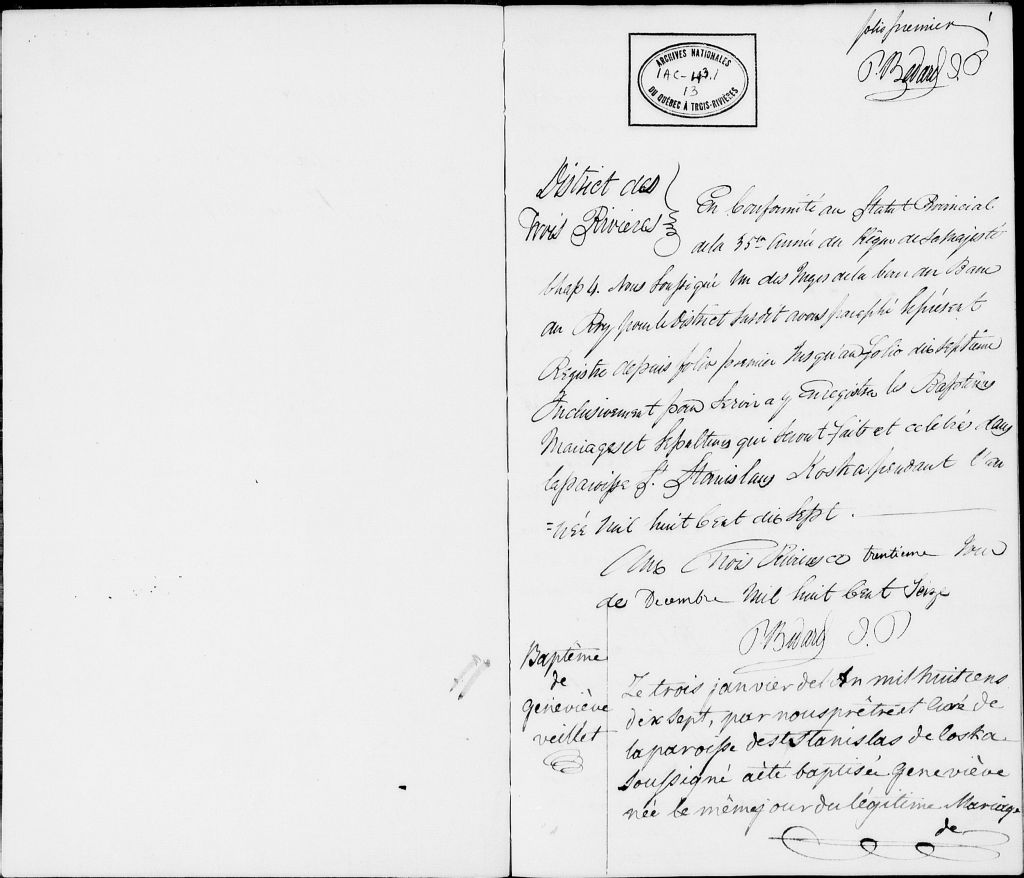 folio premier 1
P. Bedard J. P
ARCHIVES NATIONALES
1AC-43.1
13
DU QUÉBEC À TROIS-RIVIÈRES
District des
Trois Rivieres
En Conformité au Statut Provincial
de la 35me Année du Règne de Sa Majesté
Chap 4. Nous Soussigné un des Juges de la Cour du Banc
du Roy pour le District Susdit avons paraphé le présent
Régistre depuis folio premier Jusqu'au folio dix septième
Inclusivement pour Servir a y Enregistrer les Baptêmes
Mariages et Sépultures qui seront faits et celebrés dans
la paroisse St. Stanislaus Kostka pendant l'an
=née Mil huit Cent dix Sept.
Aux Trois Rivieres ce trentieme Jour
de Decembre Mil huit Cent Seize
P Bedard J. P
Baptême
de
geneviève
veillet
Le trois janvier de l'An mil huit cens
dix sept, par nous prêtre et Curé de
la paroisse de st Stanislas de Coska
soussigné a été baptisée geneviève
née le même jour du légitime Mariage
de